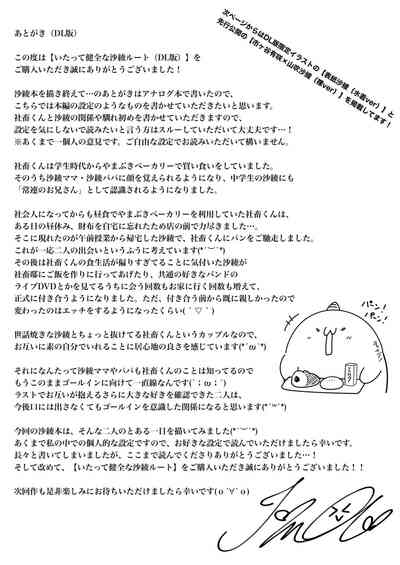 次ページからはDL版限定イラストの【表紙沙綾（水着ver）】と
先行公開の【市ヶ谷有咲×山吹沙綾（裸ver）】を掲載してます！
あとがき（DL版）
この度は【いたって健全な沙綾ルート（DL版）】を
ご購入いただき誠にありがとうございます！
沙綾本を描き終えて…のあとがきはアナログ本で書いたので、
こちらでは本編の設定のようなものを書かせていただきたいと思います。
社畜くんと沙綾の関係や馴れ初めを書かせていただきますので、
設定を気にしないで読みたいと言う方はスルーしていただいて大丈夫です…！
※あくまで一個人の意見です。ご自由な設定でお読みいただいて構いません。
社畜くんは学生時代からやまぶきベーカリーで買い食いをしていました。
そのうち沙綾ママ・沙綾パパに顔を覚えられるようになり、中学生の沙綾にも
「常連のお兄さん」として認識されるようになりました。
社会人になってからも昼食でやまぶきベーカリーを利用していた社畜くんは、
ある日の昼休み、財布を自宅に忘れたため店の前で力尽きました…。
そこに現れたのが午前授業から帰宅した沙綾で、社畜くんにパンをご馳走しました。
これが一応二人の出会いというふうに考えています(*´︶`*)
その後は社畜くんの食生活が偏りすぎてることに気付いた沙綾が
社畜邸にご飯を作りに行ってあげたり、共通の好きなバンドの
ライブDVDとかを見てるうちに会う回数もお家に行く回数も増えて、
正式に付き合うようになりました。ただ、付き合う前から既に親しかったので
変わったのはエッチをするようになったくらい( ´ ▽ ` )
世話焼きな沙綾とちょっと抜けてる社畜くんというカップルなので、
お互いに素の自分でいれることに居心地の良さを感じています(*´ω`*)
それになんたって沙綾ママやパパも社畜くんのことは知ってるので
もうこのままゴールインに向けて一直線なんです(`；ω；´)
ラストでお互いが抱えるさらに大きな好きを確認できた二人は、
今後口には出さなくてもゴールインを意識した関係になると思います(*´︶`*)
今回の沙綾本は、そんな二人のとある一日を描いてみました(*´︶`*)
あくまで私の中での個人的な設定ですので、お好きな設定で読んでいただけましたら幸いです。
長々と書いてしまいましたが、ここまで読んでくださりありがとうございました…！
そして改めて、【いたって健全な沙綾ルート】をご購入いただき誠にありがとうございます！！
次回作も是非楽しみにお待ちいただけましたら幸いです(о´∀`о)
パン！
パン！